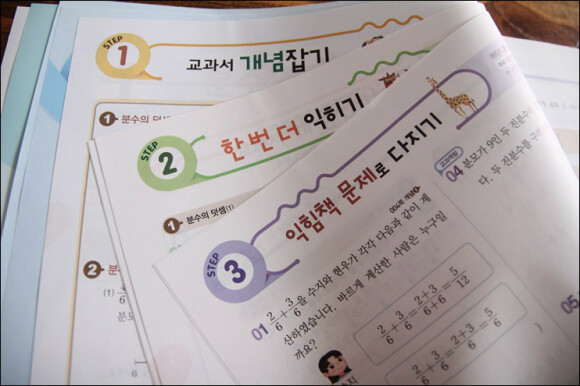 STEP 1 교과서 개념잡기
1 분수의 덧셈
2
(1)
STEP 2 한 번 더 익히기
1 분수의 덧셈(1)
STEP 3 익힘책 문제로 다지기
01 2/6+3/6을 수지와 현우가 각각 다음과 같이 계
산하였습니다. 바르게 계산한 사람은 누구일
까요?
2/6+3/6=2+3/6+6=5/12
2/6+3/6=2+3/6=5/6
교과역량
04 분모가 9인 두 진분수
다. 두 진분수를 구
05